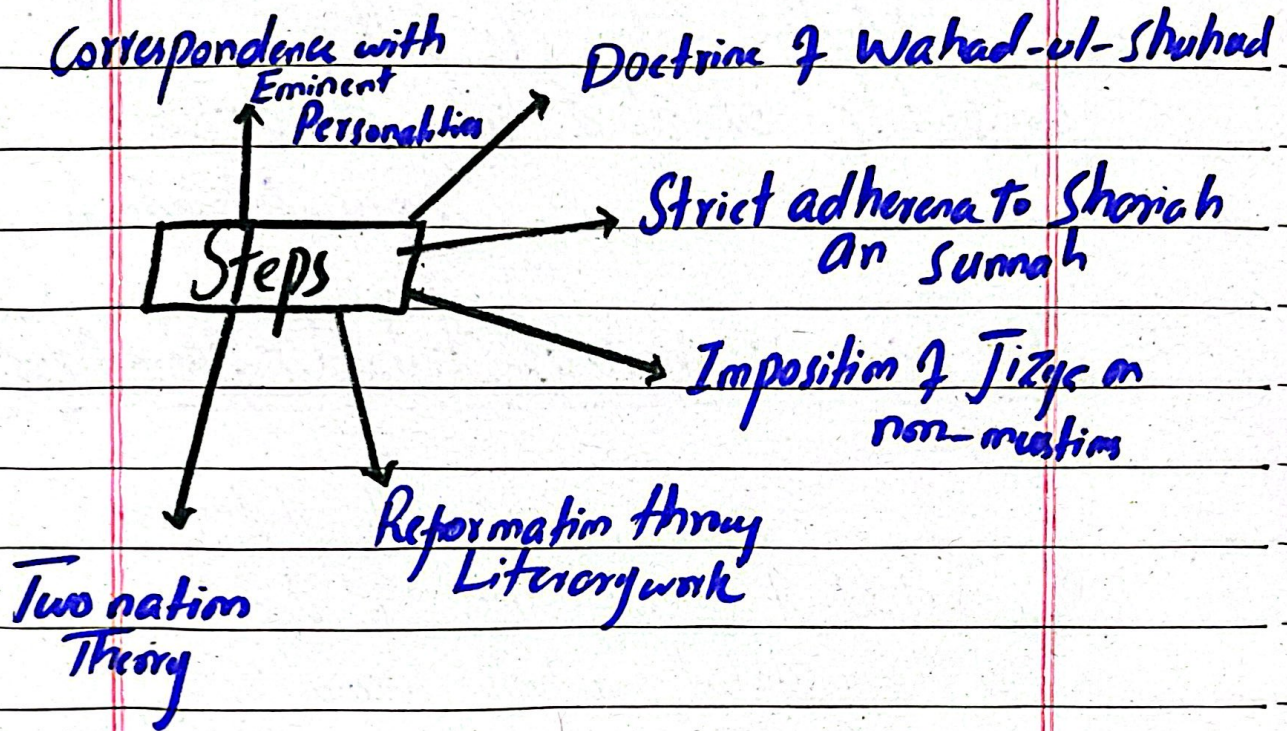 Correspondence with
Eminent
Personalities
Doctrine of Wahad-ul-Shuhud
Strict adherena to Shariah
an Sunnah
Steps
Imposition of Jizya on
non-muslims
Reformation throug
Literary work
Two nation
Theory